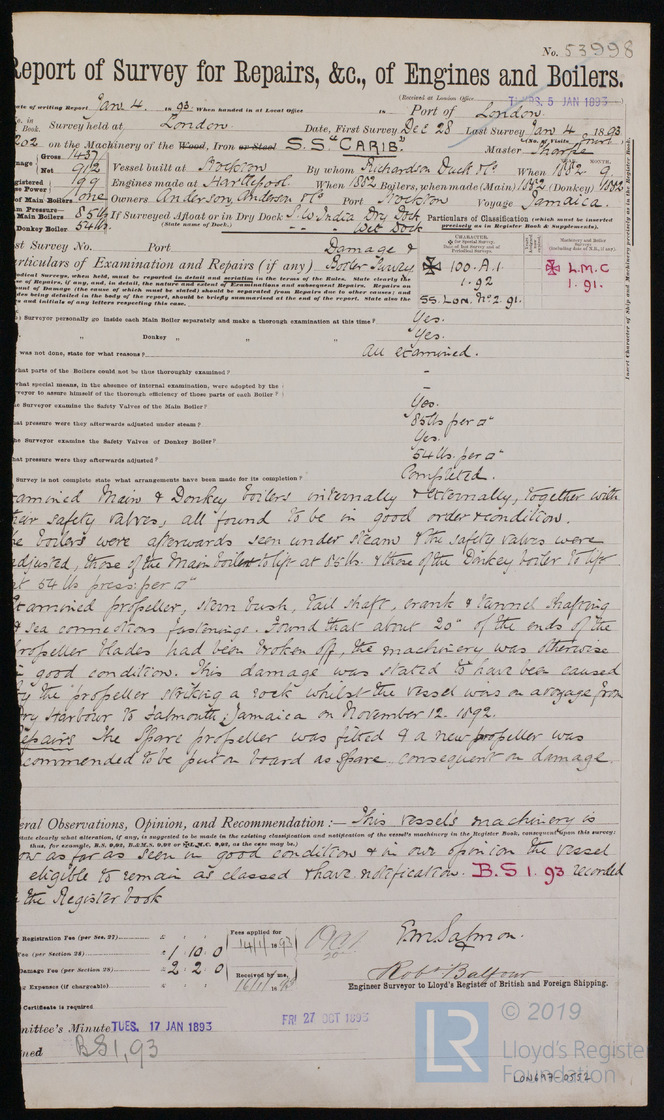 No. 53998
Report of Survey for Repairs, &c., of Engines and Boilers.
(Received at London Office THURS. 5 JAN 1893)
Date of writing Report Jan 4. 1893. When handed in at Local Office 18 Port of London.
No. in Book. Survey held at London Date, First Survey Dec 28 Last Survey Jan 4 1893
(No. of Visits Four)
on the Machinery of the Wood, Iron or Steel S.S. "CARIB" Master Tharpe
Gross 1437
Net 912
Vessel built at Stockton By whom Richardson Duck & Co When 1882. 9
YEAR. MONTH.
Registered Horse Power 199 Engines made at Hartlepool. When 1882 Boilers, when made (Main) 1882 (Donkey) 1882
No. of Main Boilers one Owners Anderson, Anderson & Co Port Stockton Voyage Jamaica.
Steam Pressure Main Boilers 85 lbs If Surveyed Afloat or in Dry Dock S W India Dry Dock
(State name of Dock.) Wet Dock
Donkey Boiler 54 lbs.
Particulars of Classification (which must be inserted precisely as in Register Book & Supplements).
Last Survey No. Port Damage &
Particulars of Examination and Repairs (if any) Boiler Survey
CHARACTER.
100. A.1
1.92
SS. Lon. No 2. 91.
L.M.C
1.91.
Insert Character of Ship and Machinery precisely as in the Register Book.
Surveyor personally go inside each Main Boiler separately and make a thorough examination at this time? Yes.
" Donkey " " " Yes.
was not done, state for what reasons? All examined.
what parts of the Boilers could not be thus thoroughly examined? -
what special means, in the absence of internal examination, were adopted by the
Surveyor to assure himself of the thorough efficiency of those parts of each Boiler? -
the Surveyor examine the Safety Valves of the Main Boiler? Yes.
what pressure were they afterwards adjusted under steam? 85 lbs per □"
the Surveyor examine the Safety Valves of Donkey Boiler? Yes.
what pressure were they afterwards adjusted? 54 lbs. per □"
Survey is not complete state what arrangements have been made for its completion? Completed.
Examined Main & Donkey boilers internally & externally, together with
their safety valves, all found to be in good order & condition.
The boilers were afterwards seen under steam & the safety valves were
adjusted, those of the Main boiler to lift at 85 lbs. & those of the Donkey boiler to lift
at 54 lbs press: per □"
Examined propeller, stern bush, tail shaft, crank & tunnel shafting
& sea connections fastenings. Found that about 20" of the ends of the
propeller blades had been broken off, the machinery was otherwise
in good condition. This damage was stated to have been caused
by the propeller striking a rock whilst the vessel was on a voyage from
Dry Harbour to Falmouth, Jamaica on November 12. 1892.
Repairs The Spare propeller was fitted & a new propeller was
recommended to be put on board as spare consequent on damage.
General Observations, Opinion, and Recommendation:— This vessel's machinery is
(state clearly what alteration, if any, is suggested to be made in the existing classification and notification of the vessel's machinery in the Register Book, consequent upon this survey;
thus, for example, B.S. 9,92, B.&M.S. 9,92 or L.M.C. 9,92, as the case may be.)
now as far as seen in good condition & in our opinion the vessel
eligible to remain as classed & have notification. B.S 1.93 recorded
in the Register book
Registration Fee (per Sec. 27)
Fee (per Section 28) 1.10.0
Damage Fee (per Section 28) 2.2.0
Expenses (if chargeable)
Fees applied for
14/1/1893
Received by me,
16/1/1893
E.M. Salmon.
Robt Balfour
Engineer Surveyor to Lloyd's Register of British and Foreign Shipping.
Certificate is required
Committee's Minute TUES. 17 JAN 1893
FRI 27 OCT 1893
BS 1,93
LR
© 2019
Lloyd's Register
Foundation
LON697-0552